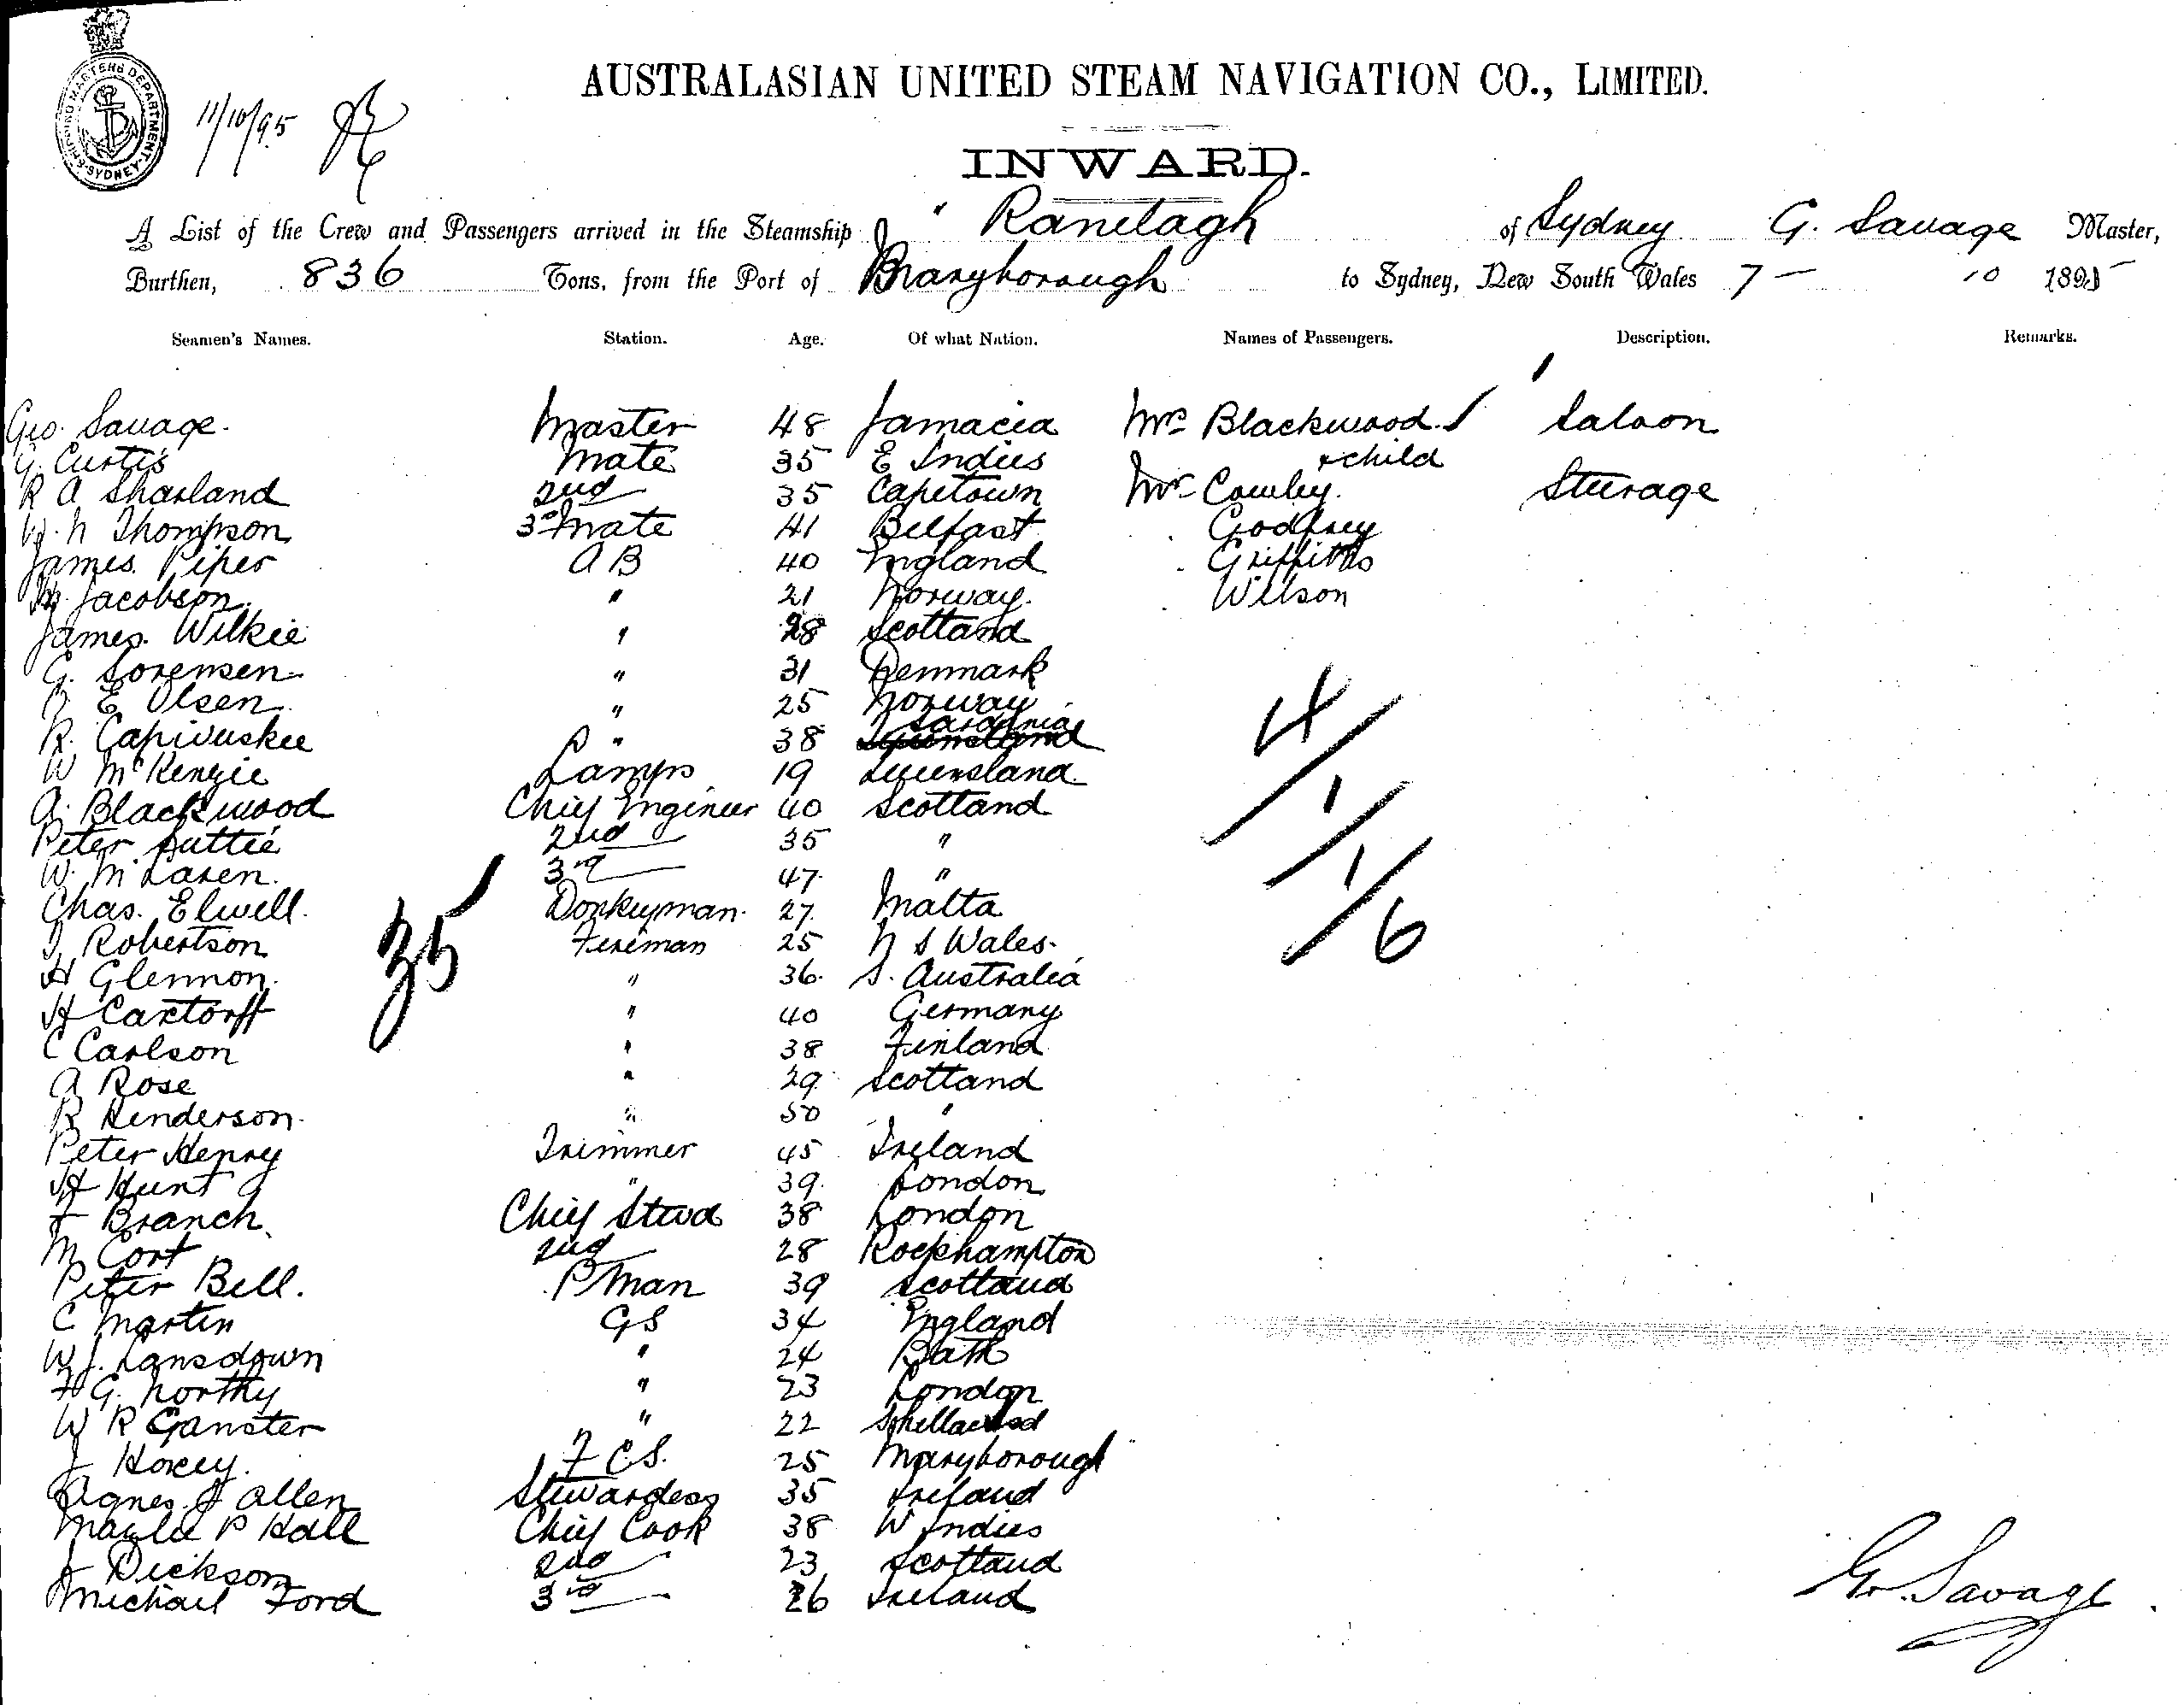 SHIPPING MASTERS DEPARTMENT
SYDNEY
11/10/95
AUSTRALASIAN UNITED STEAM NAVIGATION CO., LIMITED.
INWARD.
A List of the Crew and Passengers arrived in the Steamship " Ranelagh of Sydney G. Savage Master,
Burthen, 836 Tons, from the Port of Maryborough to Sydney, New South Wales 7 – 10 1895
Seamen's Names. Station. Age. Of what Nation. Names of Passengers. Description. Remarks.
Geo. Savage. Master 48 Jamacia Mrs Blackwood Saloon
G. Curtis Mate 35 E Indies + child
R A Sharland 2nd 35 Capetown Mr Cowley. Steerage
W. N Thompson 3rd Mate 41 Belfast Godfrey
James Piper A B 40 England Griffiths
Jacobson " 21 Norway. Wilson
James Wilkie " 28 Scotland
G. Sorensen " 31 Denmark
E Olsen " 25 Norway
R. Capivuskee " 38 Sardinia
W McKenzie Lamps 19 Queensland
A. Blackwood Chief Engineer 40 Scotland
Peter Suttie 2nd 35 "
W. McLaren. 3rd 47 "
Chas. Elwell. Donkeyman 27 Malta
Robertson Fireman 25 N S Wales
H Glennon. " 36 S. Australia
H Cartorff " 40 Germany
C Carlson " 38 Finland
A Rose " 29 Scotland
R Henderson " 50 "
Peter Henry Trimmer 45 Ireland
H Hunt " 39 London
F Branch Chief Stewd 38 London
M Cort 2nd 28 Rockhampton
Peter Bell. P Man 39 Scotland
C Martin GS 34 England
W J. Lansdown " 24 Bath
F G. Northy " 23 London
W R Ganster " 22
J Hoxey. F C.S. 25 Maryborough
Agnes J Allen Stewardess 35 Ireland
P Hall Chief Cook 38 W Indies
J Dickson 2nd 23 Scotland
Michael Ford 3rd 26 Ireland
35
4/1/1/6
G. Savage